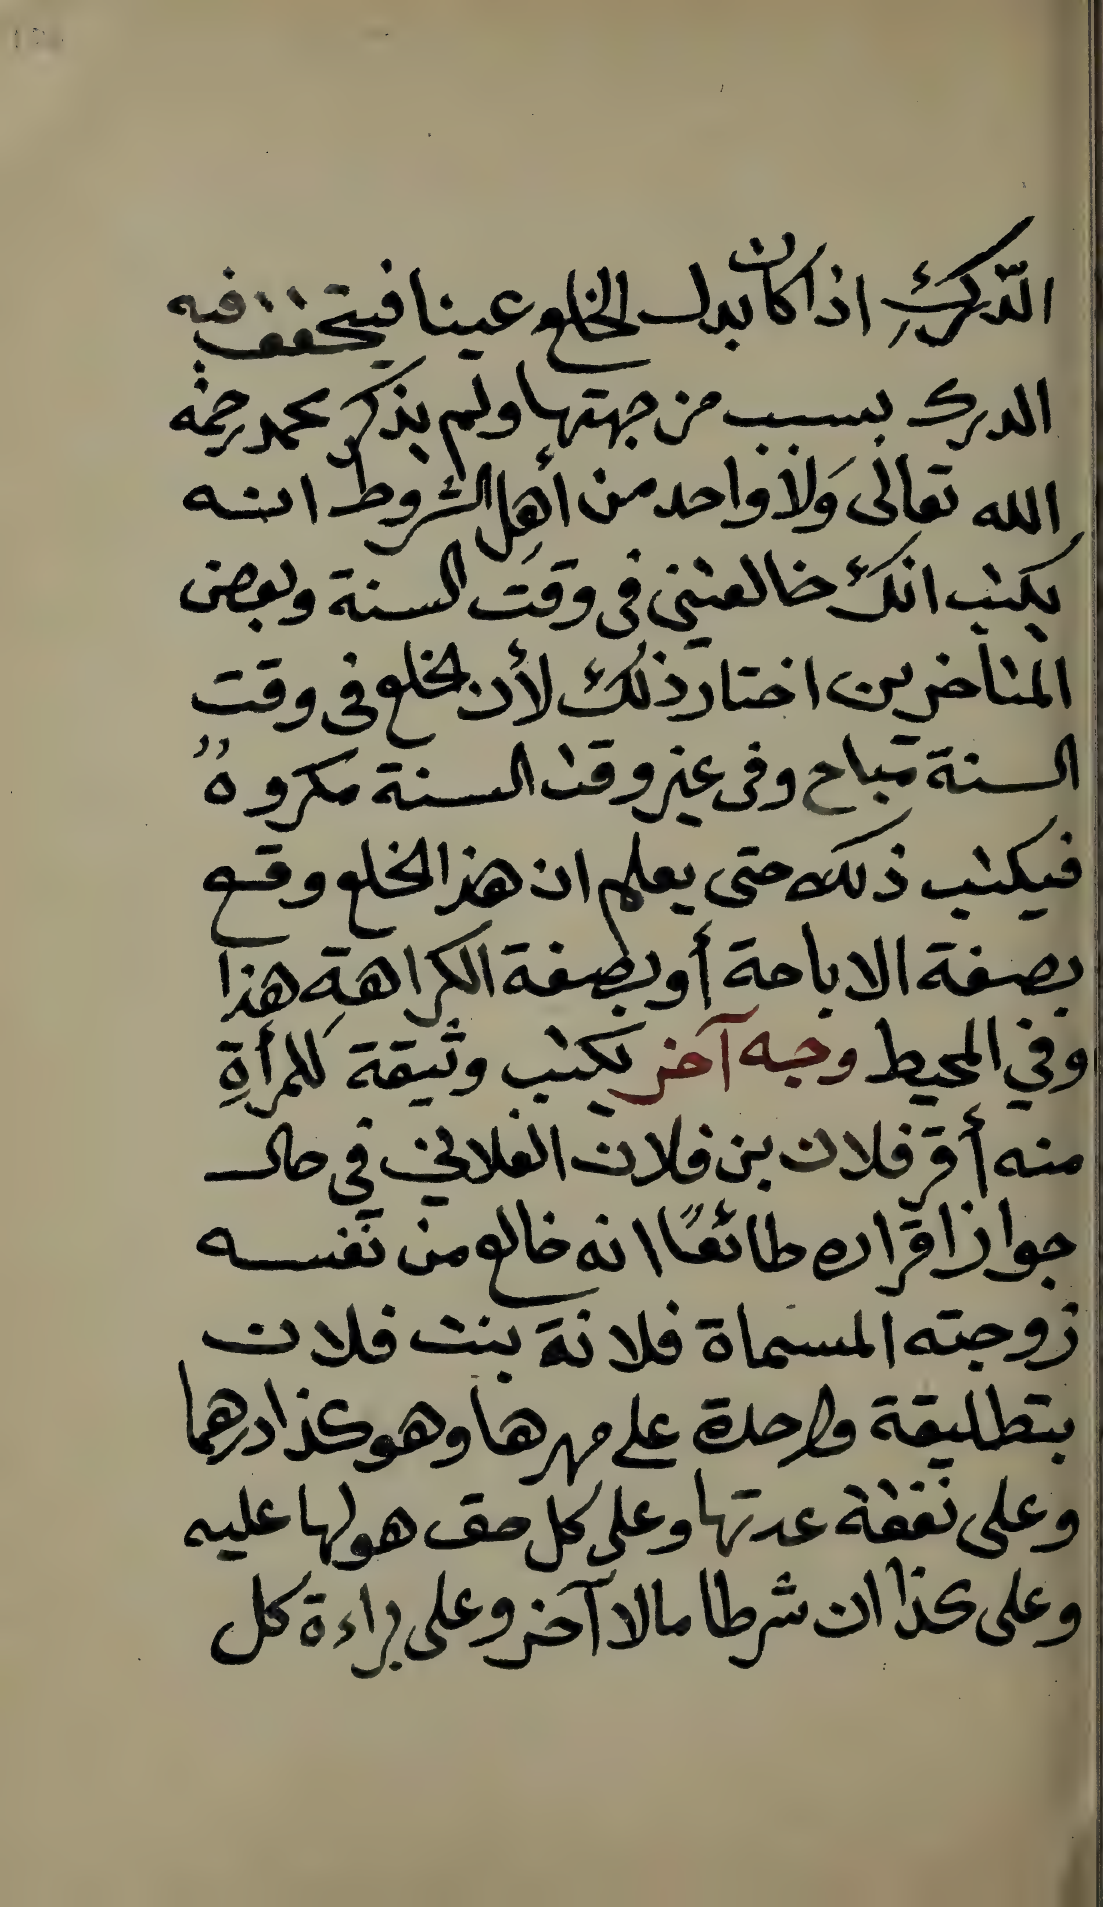 الدّركِ اذا كان بدل الخلع عينا فيتحقق فيه
الدرك بسبب من جهتها ولم يذكر محمد رحمه
الله تعالى وَلا واحد من أهلِ الشروط انه
يكتب انك خالعتني فى وقت السنة وبعض
المتأخرين اختار ذلك لأن الخلع فى وقت
السنة مباح وفى غير وقت السنة مكروهٌ
فيكتب ذلك حتى يعلم ان هذا الخلع وقع
بصفة الاباحة أو بصفة الكراهةِ هذا
وفي المحيط وجه آخر يكتب وثيقة للمرأةِ
منه أقر فلان بن فلان الفلاني فى حال
جواز اقراره طائعًا انه خالع من نفسه
زوجته المسماة فلانة بنت فلان
بتطليقة واحدة على مهرها وهو كذا درهما
وعلى نفقة عدتها وعلى كل حق هو لها عليه
وعلى كذا ان شرطا مالا آخر وعلى براءة كل